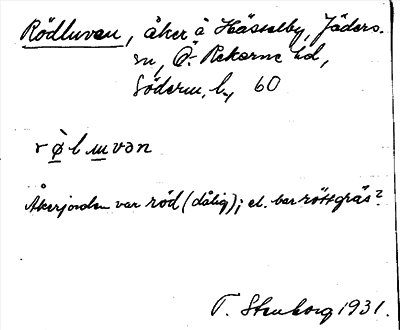 Rödluvan, åker å Hässelby, Jäders
sn, Ö. Rekarne hd,
Söderm. l., 60
rø̀lɯvən
Åkerjorden var röd (dålig); el. bar rött gräs?
T. Stenborg 1931.